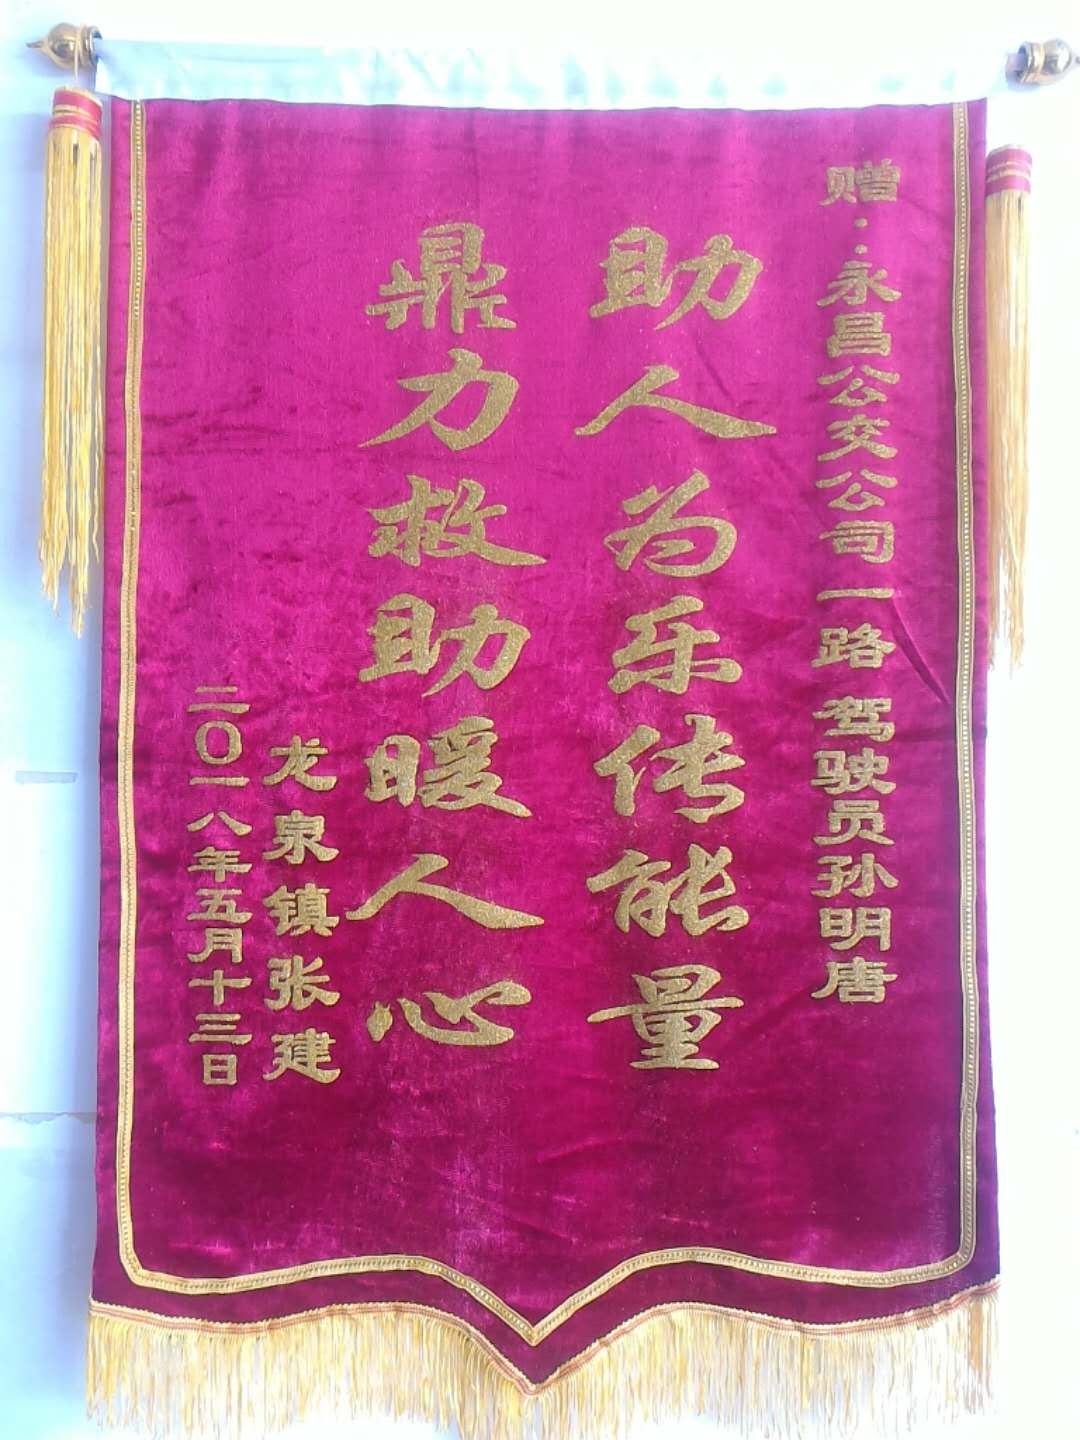 赠：永昌公交公司一路 驾驶员孙明唐
助人为乐传能量
鼎力救助暖人心
龙泉镇张建
二〇一八年五月十三日